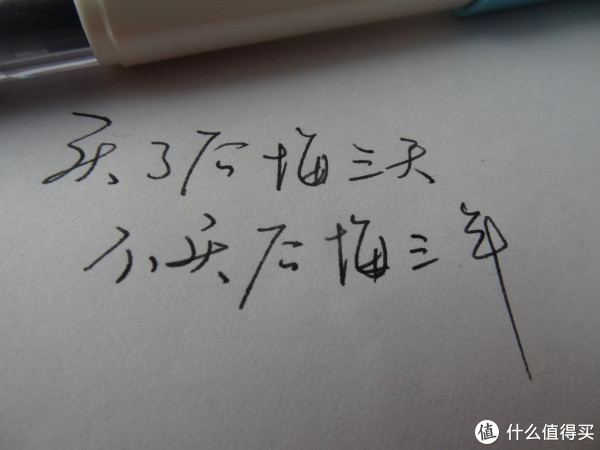 买了后悔三天
不买后悔三年
值 什么值得买